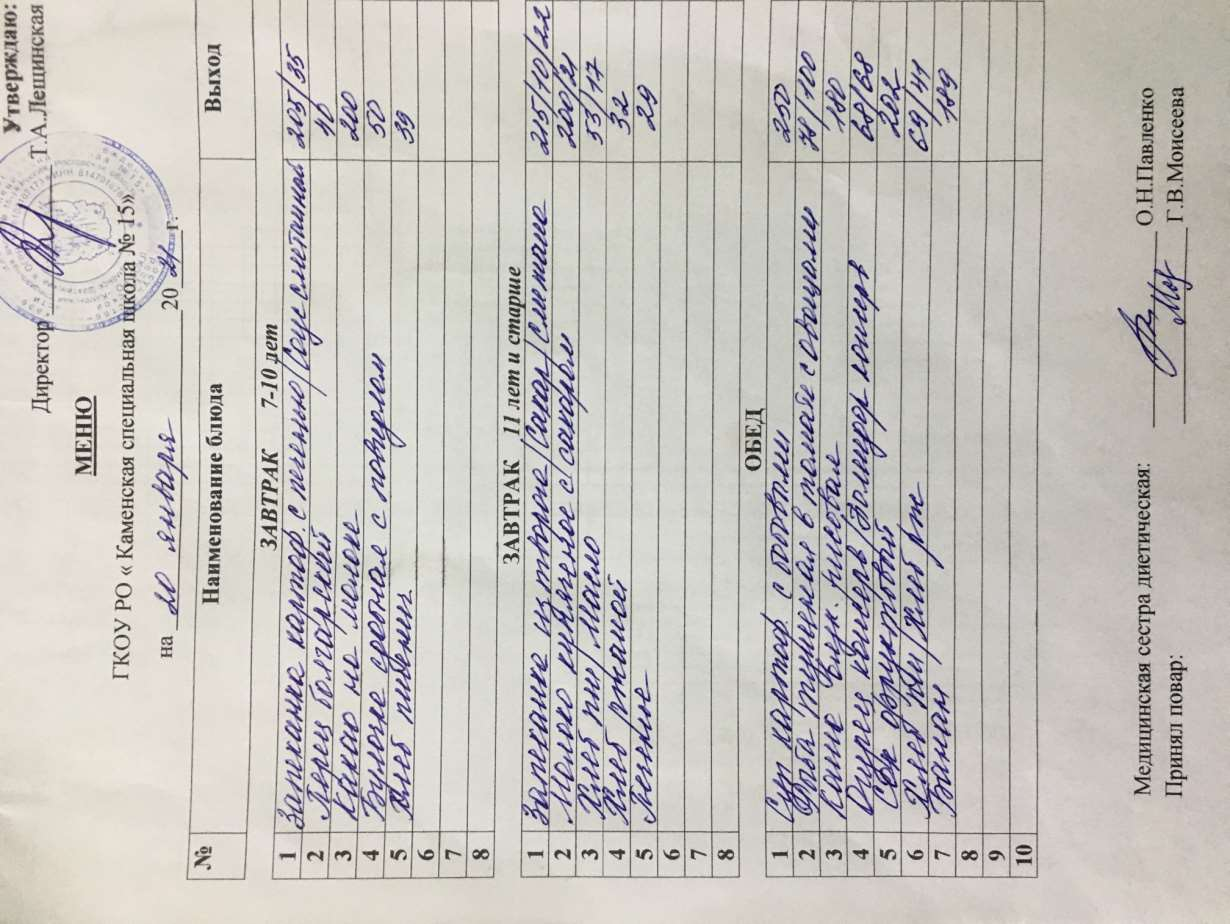 Утверждаю:
Директор Т.А.Лещинская
МЕНЮ
ГКОУ РО « Каменская специальная школа № 15»
на 20 января 2021 г.
№ Наименование блюда Выход
ЗАВТРАК 7-10 лет
1 Запеканка картоф. с печенью/Соус сметанный 205/35
2 Перец болгарский 10
3 Какао на молоке 200
4 Булочка сдобная с повидлом 50
5 Хлеб пшенич 39
6
7
8
ЗАВТРАК 11 лет и старше
1 Запеканка из творога/Сахар/Сметана 215/10/22
2 Молоко кипяченое с сахаром 200/21
3 Хлеб пш/Масло 53/17
4 Хлеб ржаной 32
5 Печенье 29
6
7
8
ОБЕД
1 Суп картоф. с бобовыми 250
2 Рыба тушеная в томате с овощами 78/100
3 Каша рисовая 180
4 Огурец консерв/Помидор консерв 68/68
5 Сок фруктовый 202
6 Хлеб пш/Хлеб рж 69/41
7 Банан 189
8
9
10
Медицинская сестра диетическая: О.Н.Павленко
Принял повар: Г.В.Моисеева